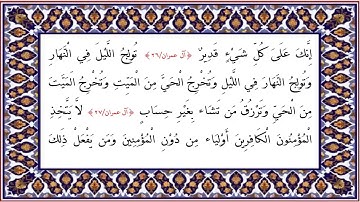 إِنَّكَ عَلَىَ كُلِّ شَيْءٍ قَدِيرٌ ﴿آل عمران/٢٦﴾ تُولِجُ اللَّيْلَ فِي الْنَّهَارِ
وَتُولِجُ النَّهَارَ فِي اللَّيْلِ وَتُخْرِجُ الْحَيَّ مِنَ الْمَيِّتِ وَتُخْرِجُ الَمَيَّتَ
مِنَ الْحَيِّ وَتَرْزُقُ مَن تَشَاء بِغَيْرِ حِسَابٍ ﴿آل عمران/٢٧﴾ لاَّ يَتَّخِذِ
الْمُؤْمِنُونَ الْكَافِرِينَ أَوْلِيَاء مِن دُوْنِ الْمُؤْمِنِينَ وَمَن يَفْعَلْ ذَلِكَ